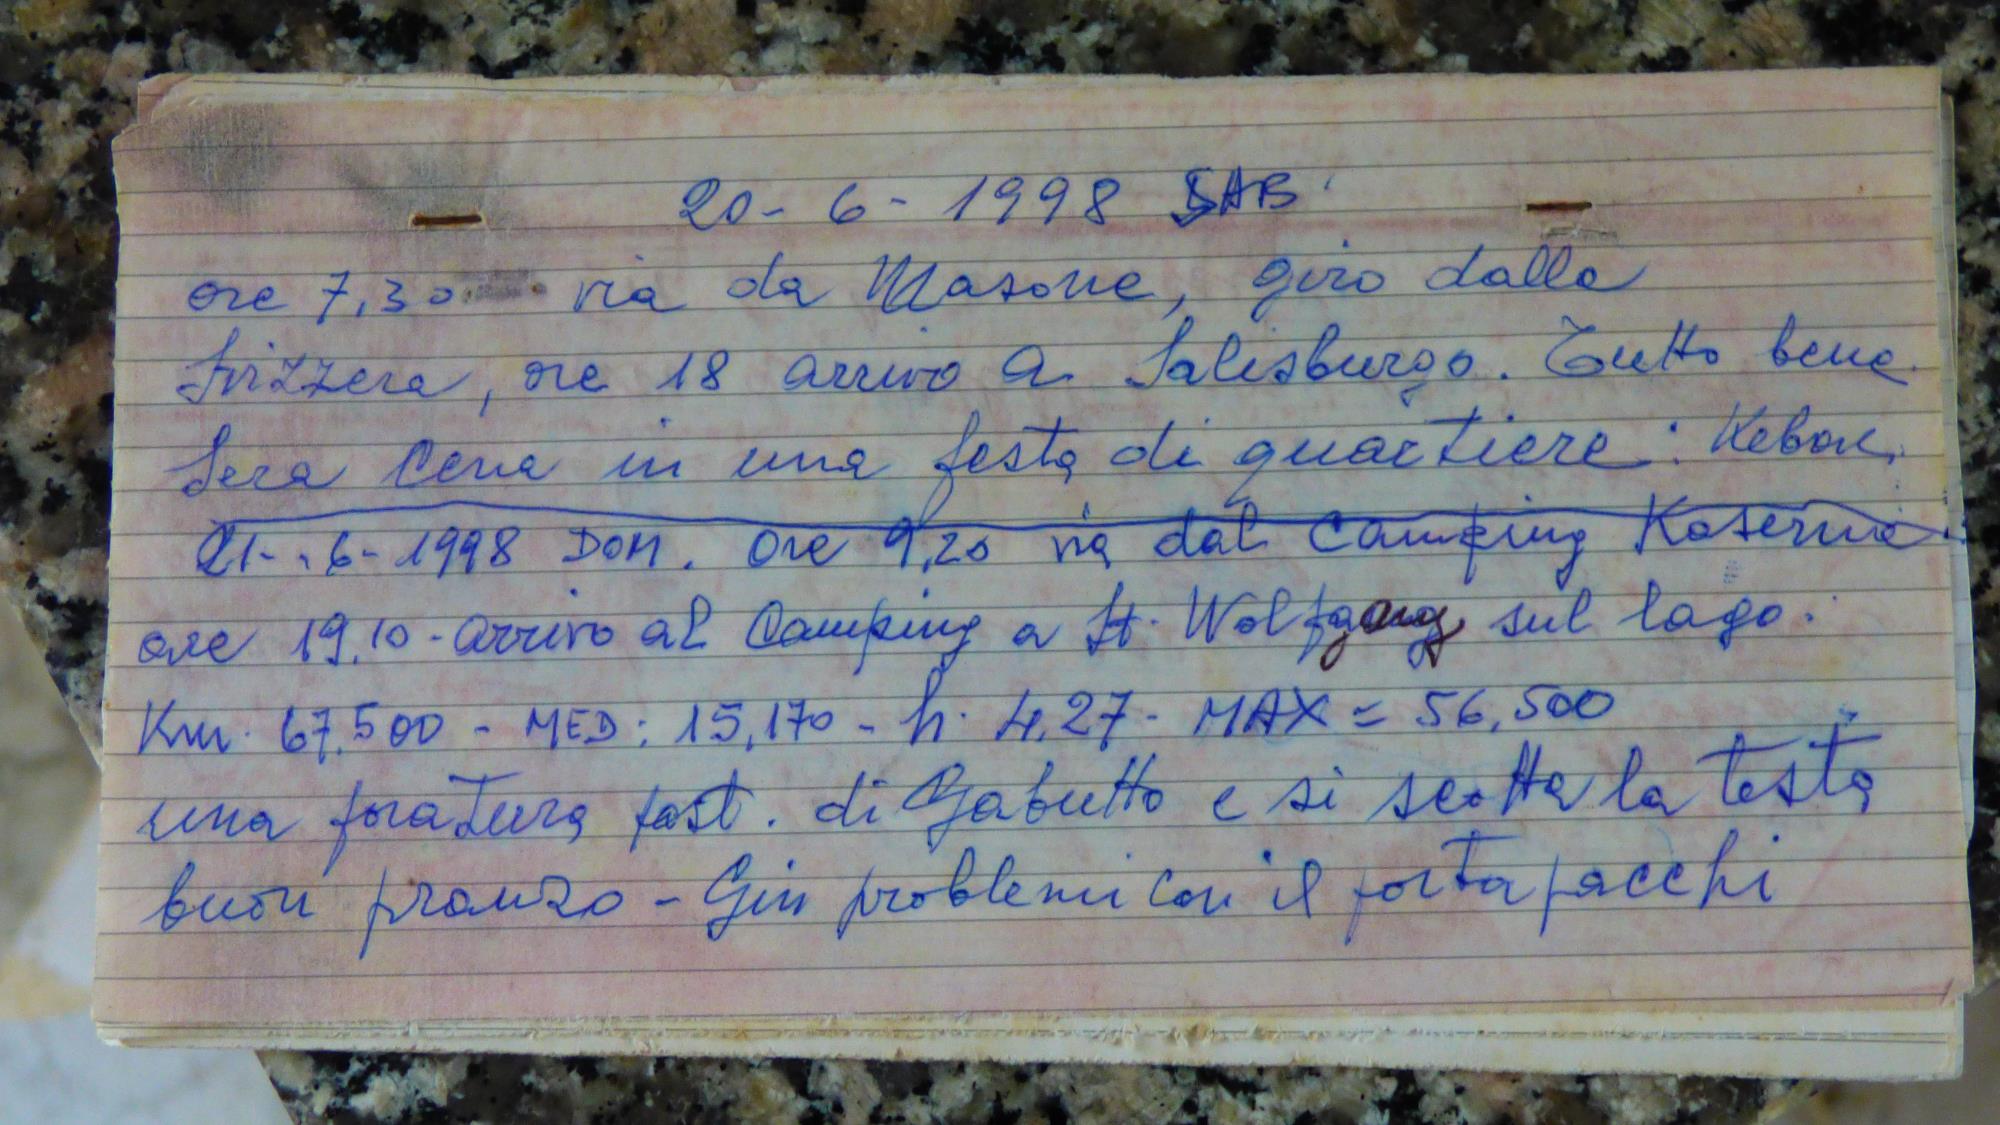 20-6-1998 SAB
ore 7,30 via da Masone, giro dalla
Svizzera, ore 18 arrivo a Salisburgo. Tutto bene.
Sera cena in una festa di quartiere:
21-6-1998 DOM. ore 9,20 via dal Camping Kaserna
ore 19,10-arrivo al Camping a St. Wolfgang sul lago.
Km. 67,500 - MED: 15,170 - h. 4,27- MAX = 56,500
una foratura post. di Gabutto e si scotta la testa
buon pranzo - Gin problemi con il portapacchi